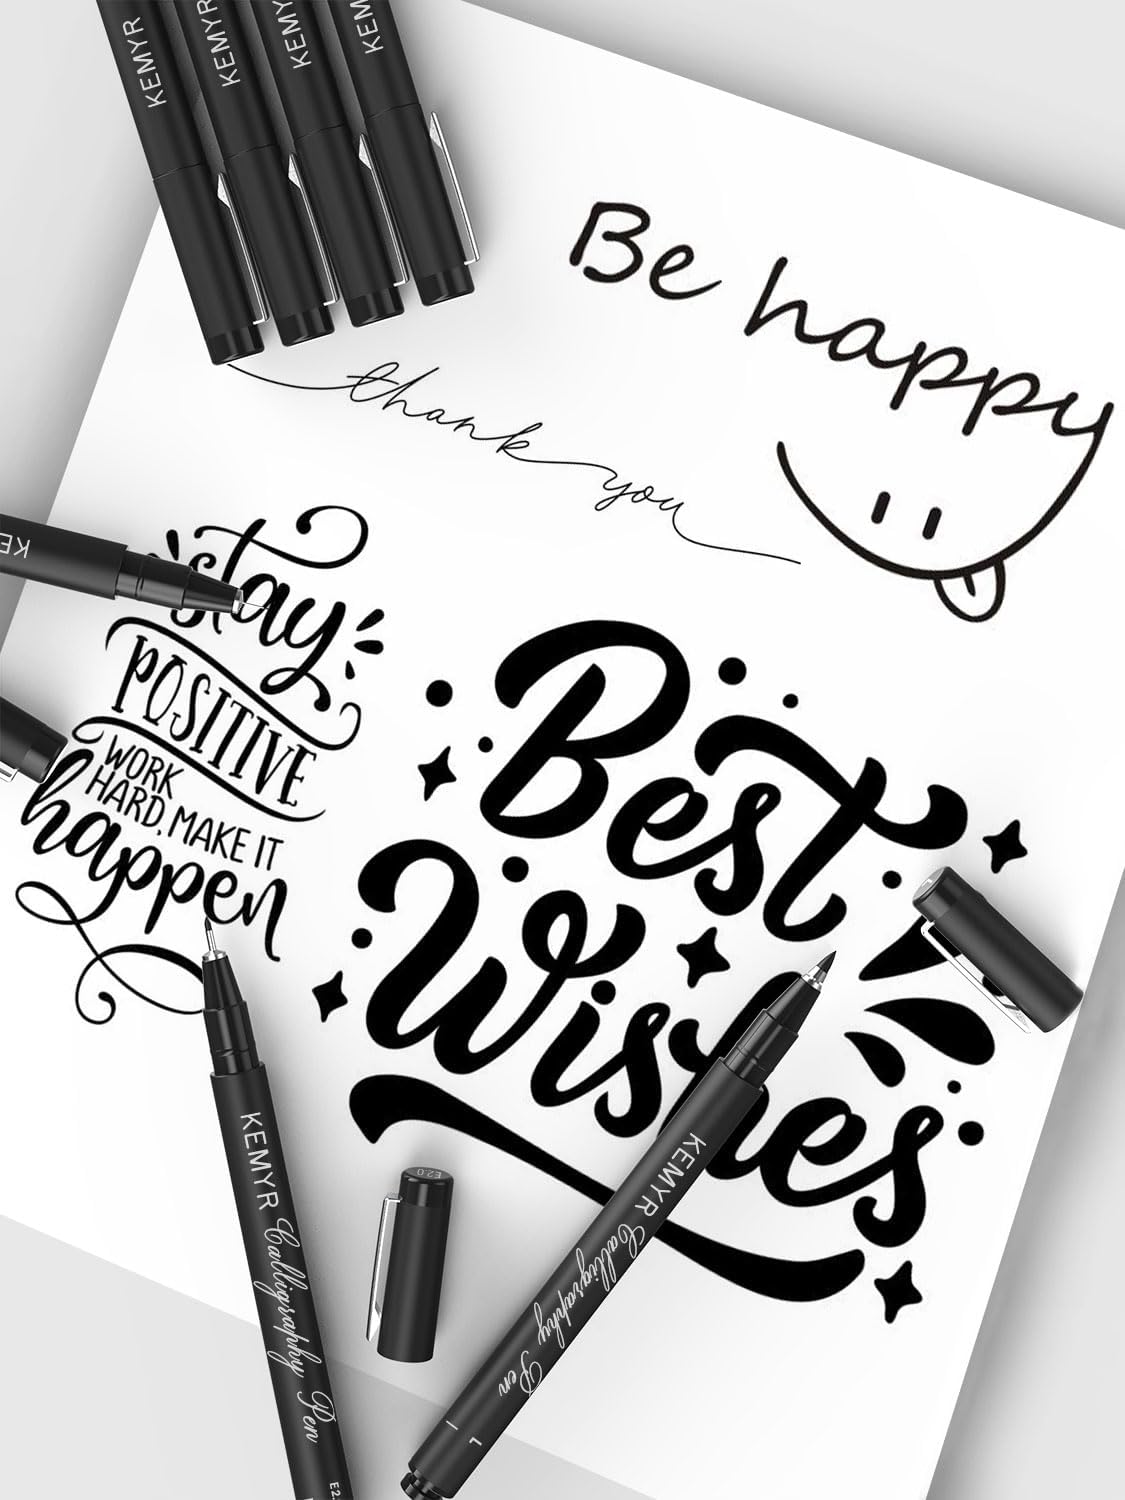 KEMYR
KEMYR
KEMYR
KEMYR
Be happy
thank you
stay
POSITIVE
WORK
HARD, MAKE IT
happen
Best
Wishes
KEMYR Calligraphy Pen
E2.0
KEMYR Calligraphy Pen
L